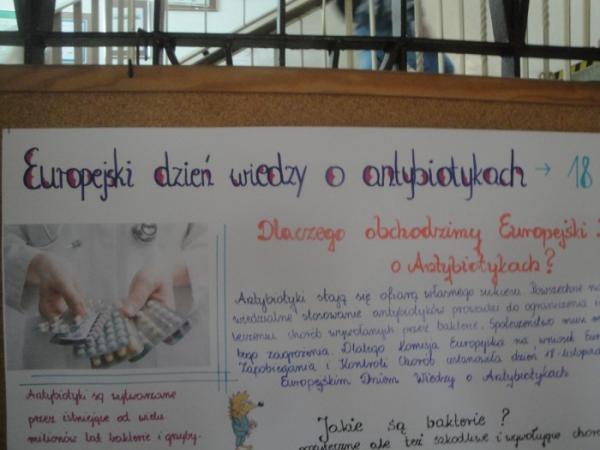 Europejski dzień wiedzy o antybiotykach → 18
Dlaczego obchodzimy Europejski
o Antybiotykach?
Antybiotyki stają się ofiarą własnego sukcesu. Powszechne
stosowanie antybiotyków prowadzi do ograniczenia
chorób wywołanych przez bakterie. Społeczeństwo musi
tego zagrożenia. Dlatego Komisja Europejska na wniosek
Zapobiegania i Kontroli Chorób ustanowiła dzień 18-listopada
Europejskim Dniem Wiedzy o Antybiotykach
Antybiotyki są wytwarzane
przez istniejące od wielu
milionów lat bakterie i grzyby.
Jakie są bakterie?
pożyteczne ale też szkodliwe i wywołujące